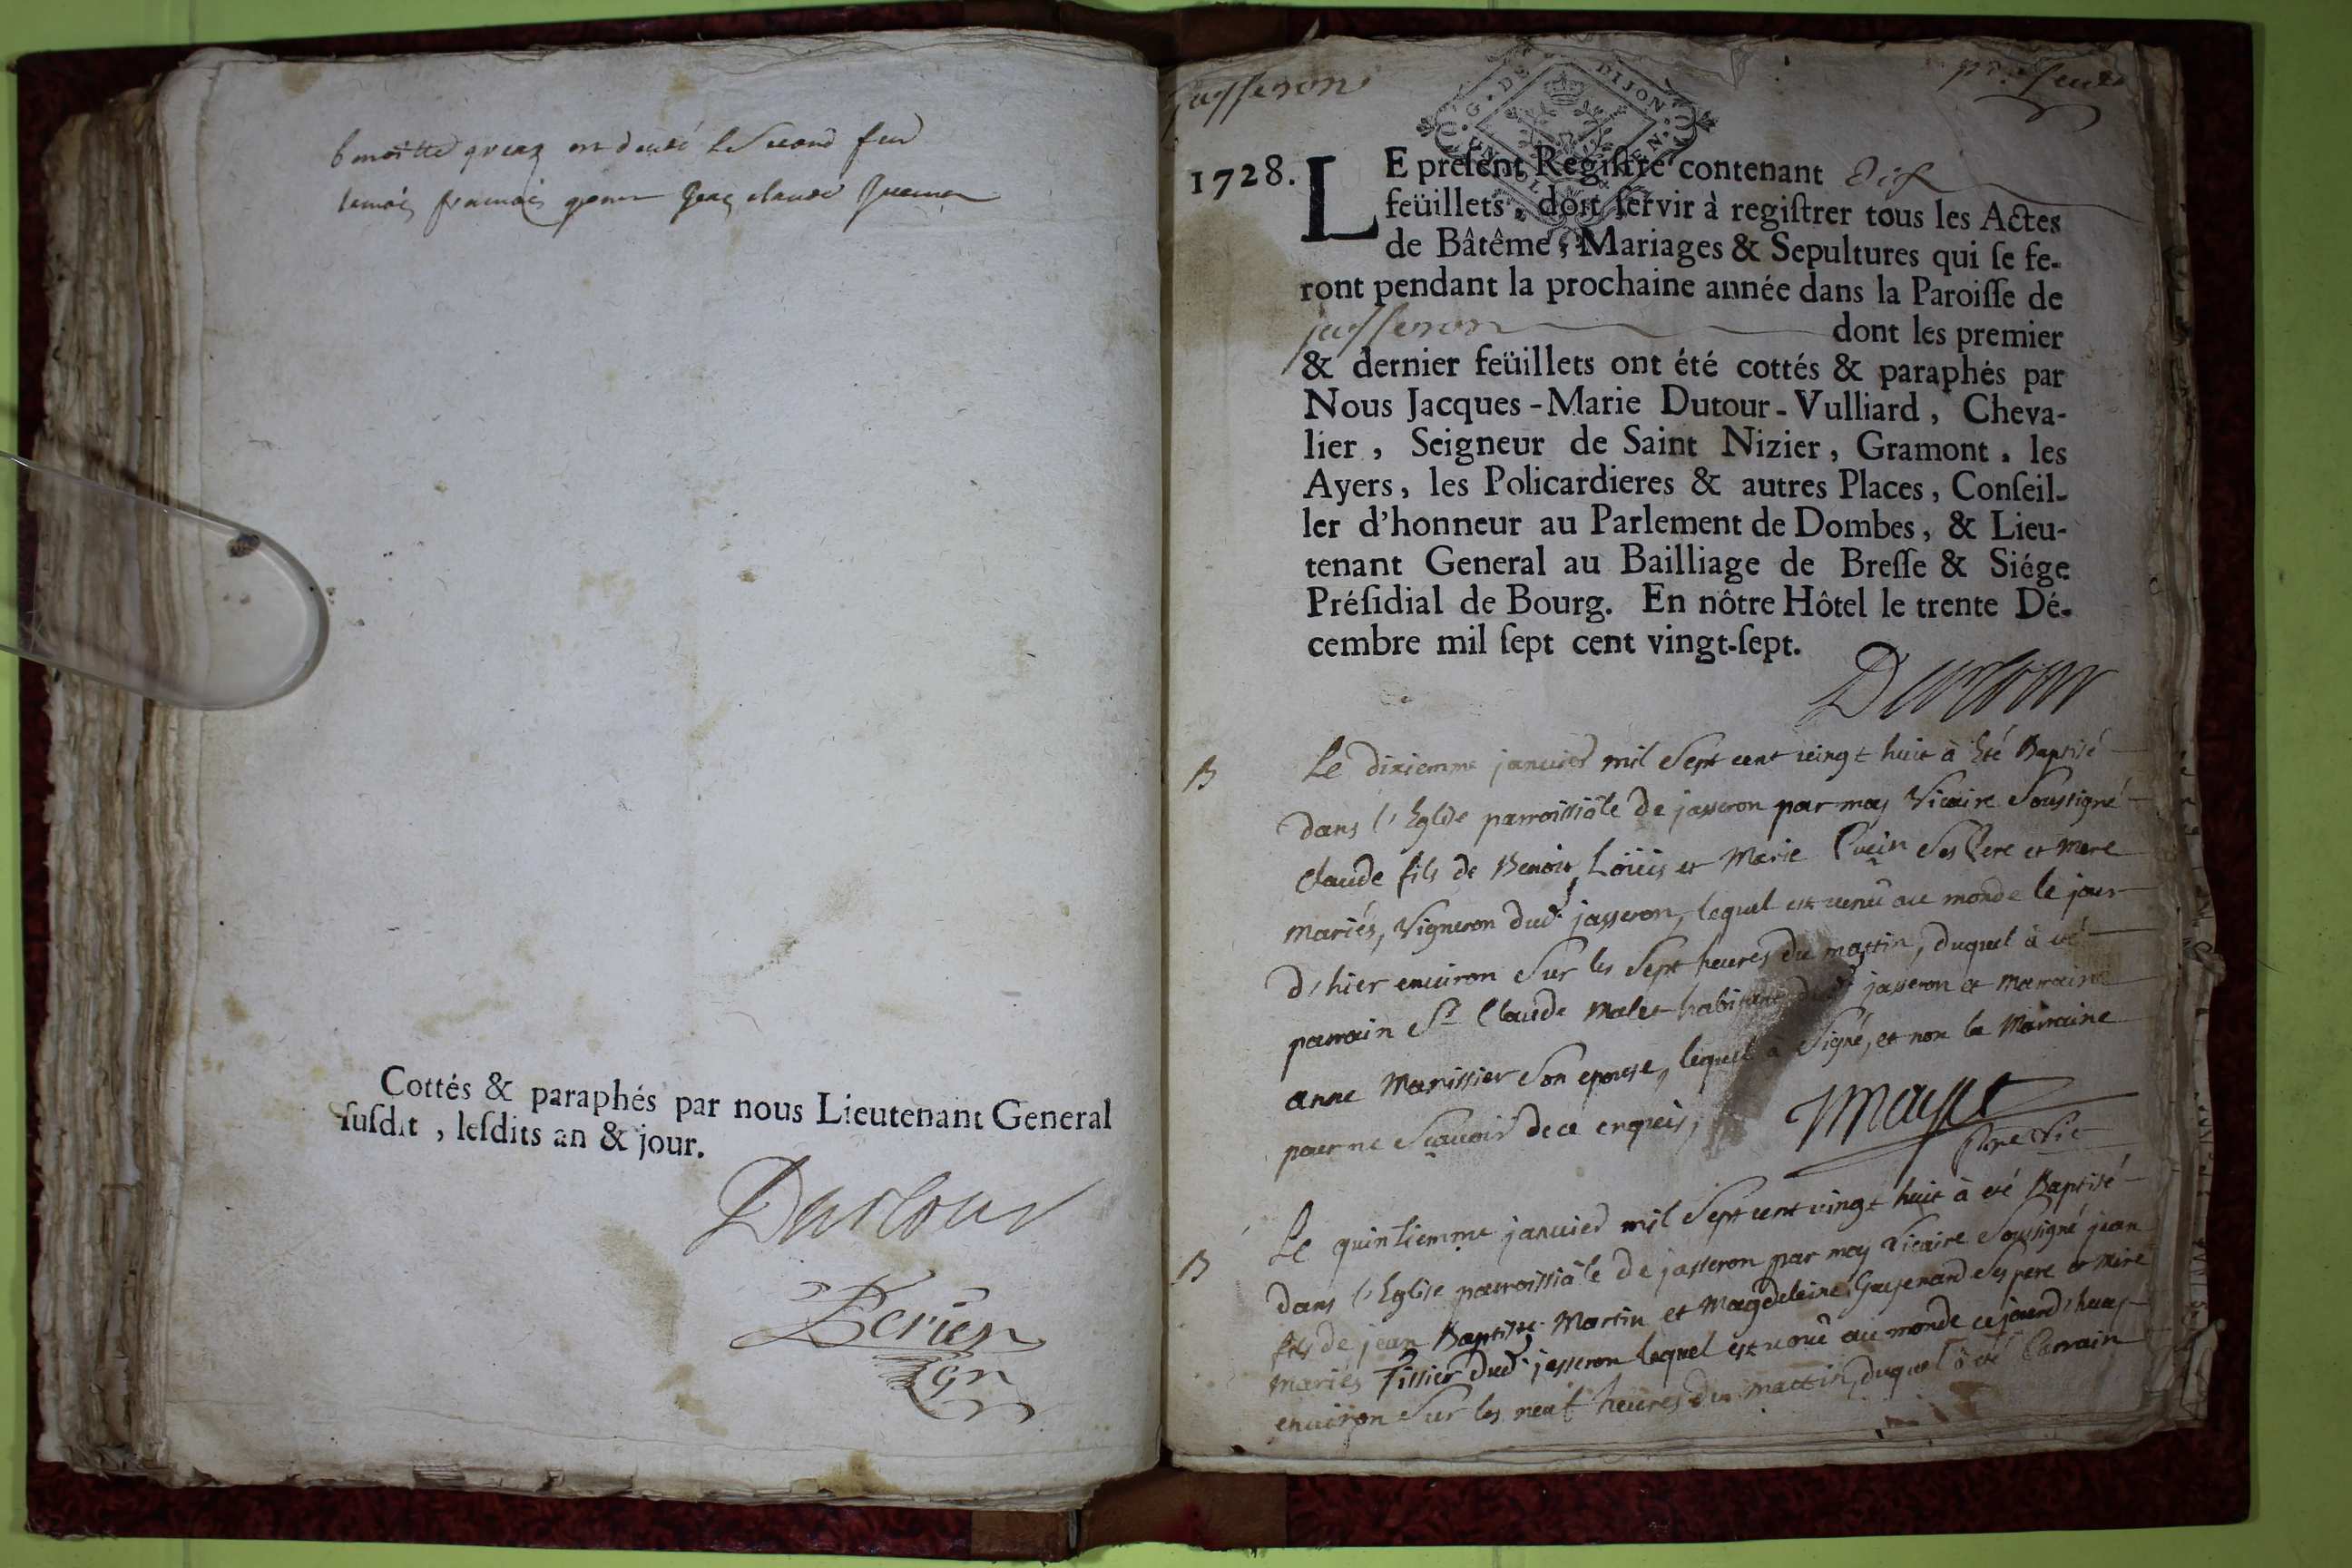 le second
claude
Cottés & paraphés par nous Lieutenant General
susdit , lesdits an & jour.
Dutour
Perier
Jasseron
G. DE DIJON
1728. LE present Registre contenant dix
feüillets, doit servir à registrer tous les Actes
de Bâtême, Mariages & Sepultures qui se fe-
ront pendant la prochaine année dans la Paroisse de
jasseron dont les premier
& dernier feüillets ont été cottés & paraphés par
Nous Jacques-Marie Dutour-Vulliard, Cheva-
lier, Seigneur de Saint Nizier, Gramont, les
Ayers, les Policardieres & autres Places, Conseil-
ler d'honneur au Parlement de Dombes, & Lieu-
tenant General au Bailliage de Bresse & Siége
Présidial de Bourg. En nôtre Hôtel le trente Dé-
cembre mil sept cent vingt-sept.
Dutour
B Le dixiemme janvier mil Sept cent vingt huit à été Baptisé
dans l'Eglise parroissiâle de jasseron par moy Vicaire Soussigné
Claude fils de Benoit Loüis et Marie Ses Pere et mere
mariés, Vigneron dud. jasseron, lequel est venû au monde le jour
d'hier environ Sur les Sept heures du mattin, duquel à eté
parrain Sr Claude Malet habitant dud. jasseron et marraine
anne Manissier Son epouse, lequel à Signé, et non la Marraine
pour ne Sçavoir de ce enquis,
Mayet
B Le quinziemme janvier mil Sept cent vingt huit à eté Baptisé
dans l'Eglise parroissiâle de jasseron par moy Vicaire Soussigné jean
fils de jean Baptiste Martin et Magdeleine Ses pere et mere
mariés Tissier dud. jasseron lequel est venû au monde cejourd'huy
environ Sur les neuf heures du mattin, duquel à eté Parrain